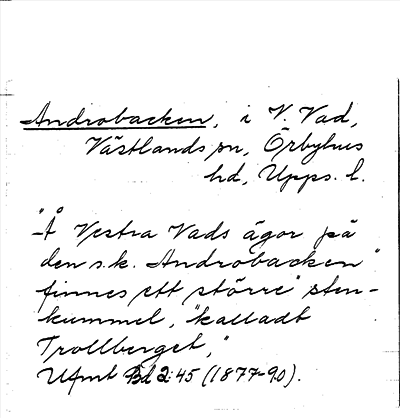 Androbacken, i V. Vad,
Västlands sn, Örbyhus
hd, Upps. l.
"Å Vestra Vads ägor på
den s.k. Androbacken"
finnes ett större "sten-
kummel, "kalladt
Trollberget,"
UfmT Bd 2:45 (1877-90).